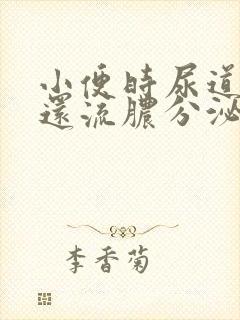 小便時尿道
還流膿分泌
李香菊